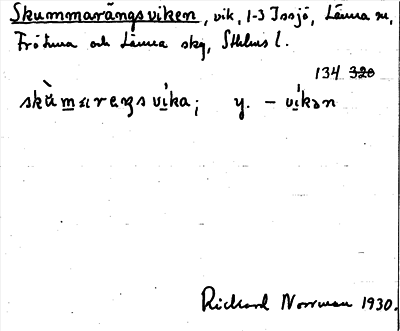 Skummarängsviken, vik, 1-3 Issjö, Länna sn,
Frötuna och Länna skg, Sthlms l.
134 320
skùmareŋsvika; y. – víkən
Rickard Norrman 1930.